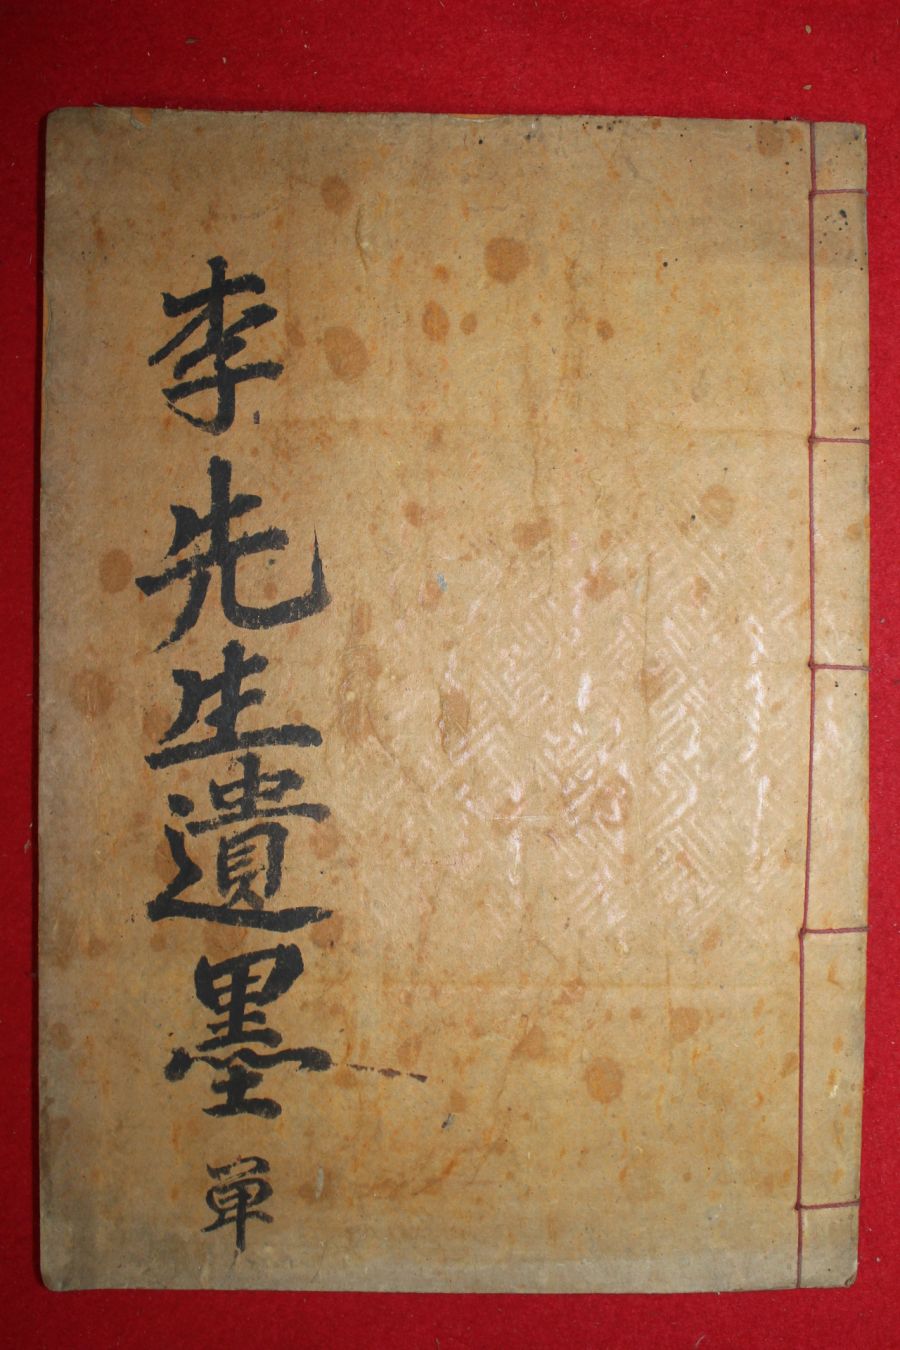 李先生遺墨 単